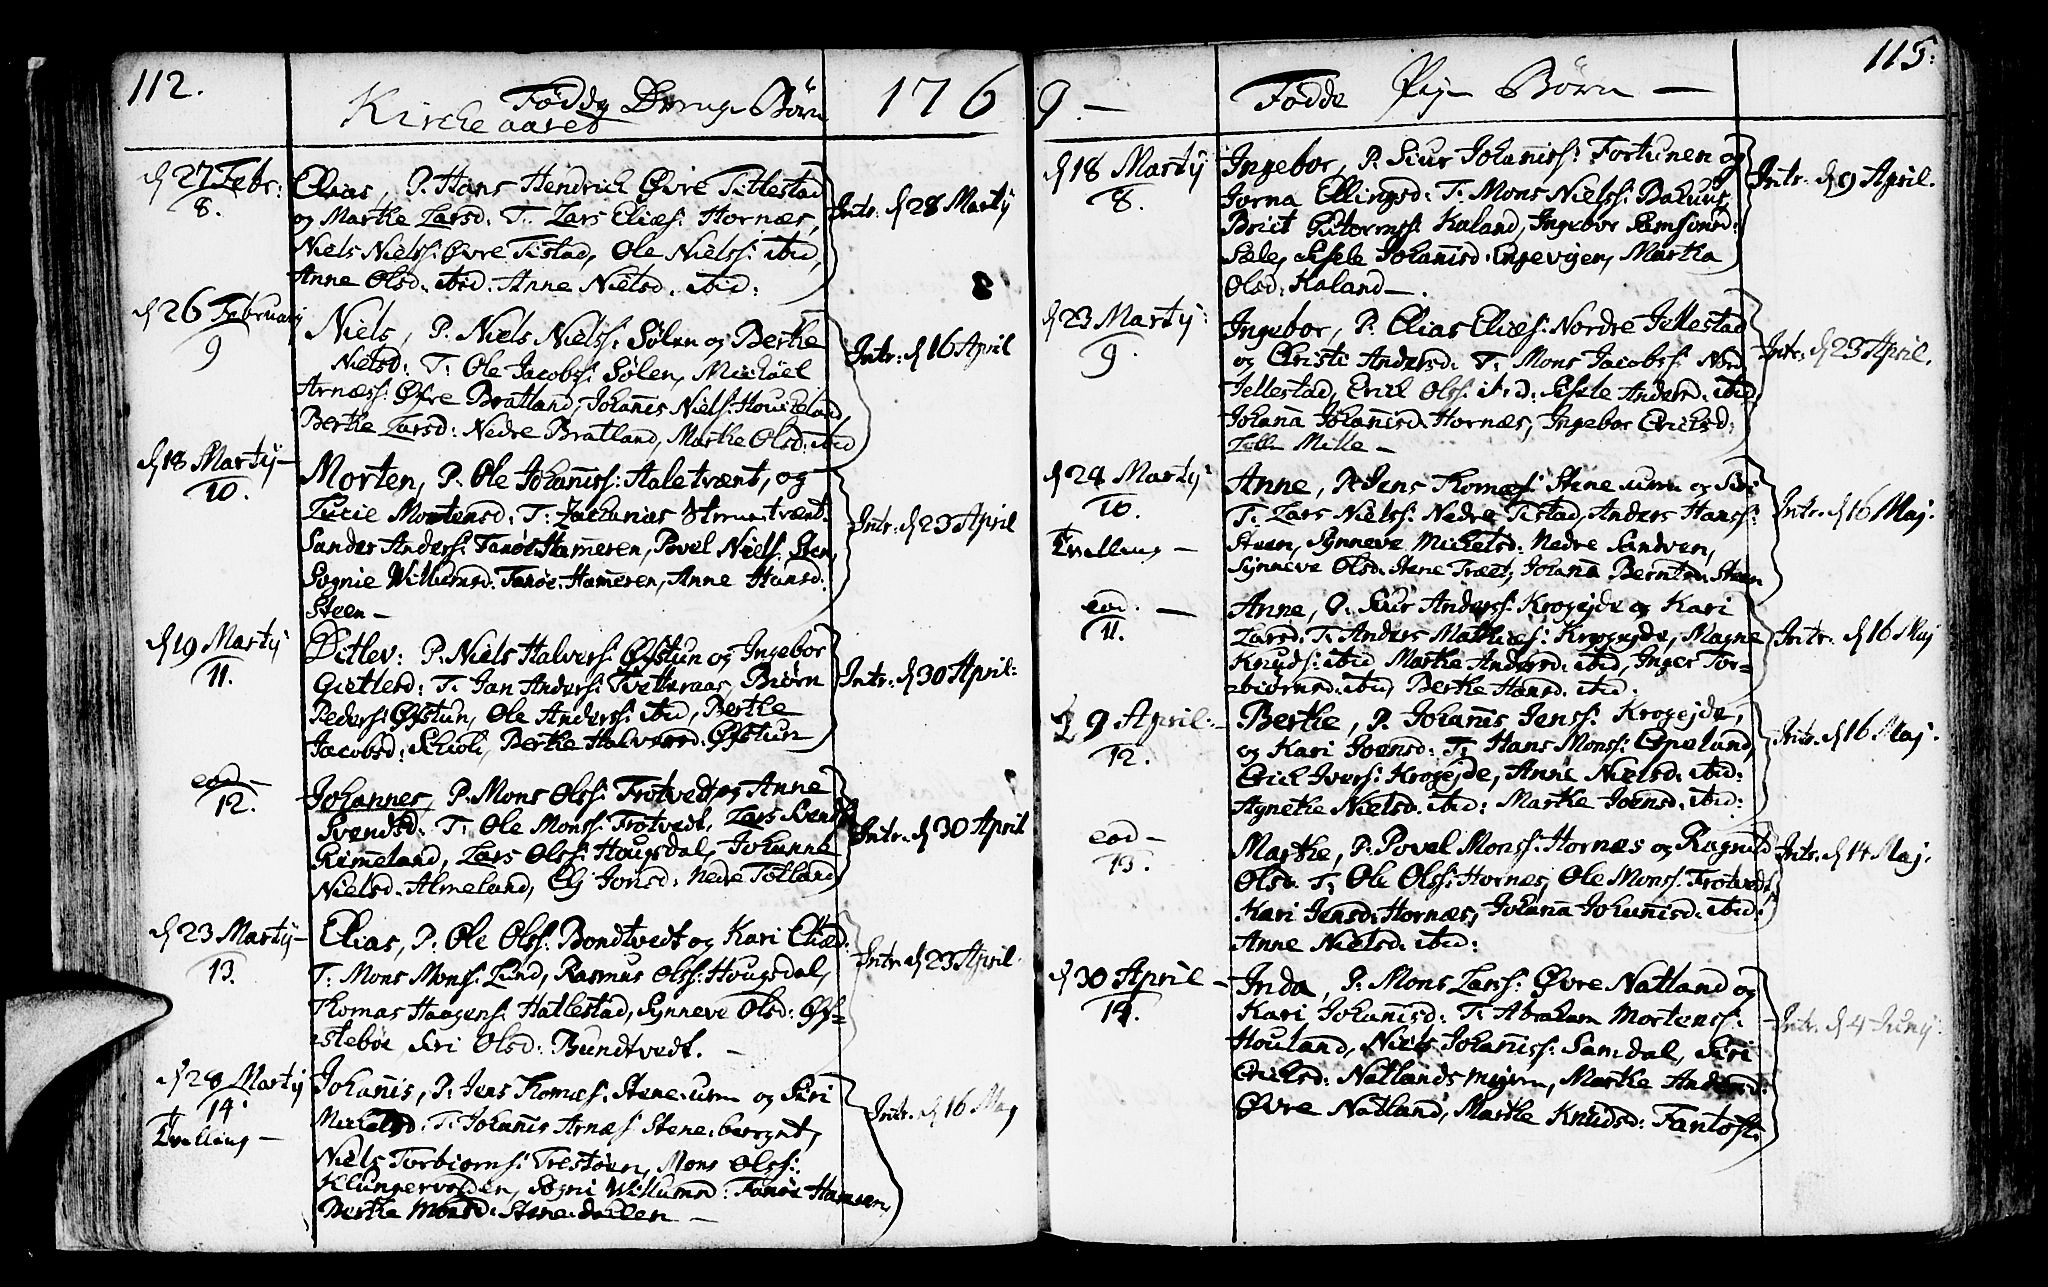 112.
Fødde Drenge Børn
Kirke aaret
176
d 27 Febr:
8.
Elias, P. Hans Hendrich Øvre Titlestad
og Marthe Larsd: T. Lars Eliæs: Hornæs,
Niels Nielss: Øvre Tistad, Ole Nielss: ibid,
Anne Olsd. ibid. Anne Nielsd. ibid:
Intr: d 28 Martij
d 26 February
9
Niels, P. Niels Nielss: Sølen og Berthe
Nielsd: T: Ole Jacobss: Sølen, Michael
Arnæss: Øfre Bratland, Johanis Niels: Houkeland,
Berthe Larsd: Nedre Bratland, Marthe Olsd: ibid
Intr: d 16 April
d 18 Martij
10.
Morten, P. Ole Johaniss: Haletrænt, og
Lucie Mortensd: T: Zacharias
Sander Anders: Tarøe Hameren, Povel Niels: Sten,
Sognie Willumsd. Tarøe Hameren, Anne Hansd:
Steen —
Intr: d 23 April
d 19 Martij
11.
Ditlev: P. Niels Halvers: Øfstun og Ingebor
Gietlesd: T. Jan Anders: Tvetteraas, Biørn
Peders: Øfstun, Ole Anderss: ibid, Berthe
Jacobsd: Schiold, Berthe Halversd: Øfstun
Intr: d 30 April:
eod —
12.
Johannes, P. Mons Olss: Trotvedt og Anne
Svendsd: T: Ole Monss: Trotvedt, Lars Svends:
Rimeland, Lars Olss: Hougsdal, Johanne
Nielsd. Almeland, Eli Jonsd: Nedre Totland
Intr: d 30 April
d 23 Martij —
13.
Elias, P. Ole Olss: Bondtvedt og Kari Eliæd:
T: Mons Mons: Lund, Rasmus Olss: Hougsdal,
Thomas Haagens: Hatlestad, Synneve Olsd: Øf=
=stebøe, Siri Olsd: Bundtvedt. —
Intr. d 23 April.
d 28 Martij
14.
Tvilling —
Johanis, P. Jens Thomæs: Stene-urn og Siri
Michelsd: T: Johanis Arnæs: Stene,
Niels Torbiorns: Trestøen, Mons Olss:
Klungervolden, Sogni Willumsd: Tarøe Hameren,
Berthe Monsd: Stene dallen —
Intr: d 16 Maj
115.
9. — Fødde Pige Børn —
d 18 Martij
8.
Ingebor, P. Siur Johaniss: Fortunen og
Jorna Ellingsd: T: Mons Nielss:
Briet Gutorms: Kaland, Ingebor Samsonsd:
Sæle, Sisele Johanisd: Engevigen, Martha
Olsd: Kaland —.
Intr. d 9 April.
d 23 Martij:
9.
Ingebor, P. Elias Eliæs: Nordre Jellestad
og Christi Andersd: T: Mons Jacobss: Nord
Jellestad, Erich Olss: ibid: Sisele Andersd: ibid,
Johana Johanisd. Hornæs, Ingebor Erichsd:
Lille Mille —
Intr. d 23 April.
d 24 Martij
10.
Tvilling —
Anne, P. Jens Thomæs: Stene urn og Siri
T: Lars Nielss: Nedre Tistad, Anders Hanss:
Steen, Synneve Michelsd: Nedre Sandven,
Synneve Olsd: Stene Træet, Johana Berntsd. Steen
Intr. d 16 Maj.
eod. —
11.
Anne, P. Siur Anderss: Krogejde og Kari
Larsd: T. Anders Mathiæs: Krogejde, Magne
Knuds: ibid Marthe Andersd: ibid, Inger Tor=
=biornsd: ibid, Berthe Hansd. ibid.
Intr. d 16 Maj
d 9 April. —
12.
Berthe, P. Johanis Jenss: Krogejde,
og Kari Joensd: T. Hans Monss: Espeland,
Erich Ivers: Krogejde, Anne Nielsd. ibid:
Agnethe Nielsd. ibid: Marthe Joensd: ibid:
Intr. d 16 Maj.
eod —
13.
Marthe, P. Povel Monss: Hornæs og Ragnild
Olsd. T. Ole Olss: Hornæs, Ole Monss: Trotvedt,
Kari Jensd: Hornæs, Johana Johanisd: ibid:
Anne Nielsd. ibid:
Intr. d 14 Maj.
d 30 April —
14.
Inda, P. Mons Larss: Øvre Natland og
Kari Johanisd: T. Abraham Mortenss:
Houland, Niels Johaniss: Samdal, Siri
Erichsd: Natlands myren, Marthe Andersd:
Øvre Natland, Marthe Knudsd: Fantoft.
Intr. d 4 Junij